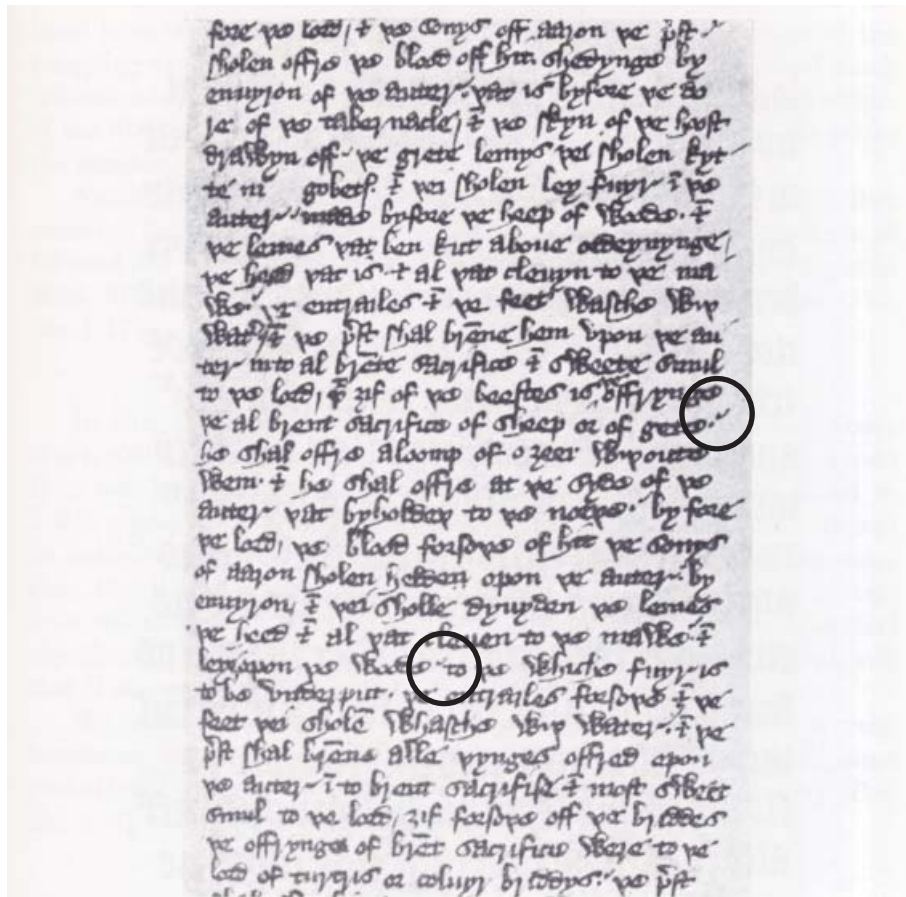 fore þe lord / ⁊ þe sonys off aaron þe p̄st
sholen offre þe blood off hit shedynge by
enuyron of þe auter · þat is byfore þe do
re of þe tabernacle / ⁊ þe skyn of þe hoost
drawyn off · þe grete lemys þei sholen kyt
te in gobetſ . ⁊ þei sholen ley fuyr · ī þe
auter · made byfore þe heep of wode · ⁊
þe lemes þat ben kut above ordeynynge /
þe heed þat is · ⁊ al þat cleuyn to þe ma
we · þe entrailes ⁊ þe feet wasche wiþ
wat̉ / ⁊ þe p̄st shal brēne hem vpon þe au
ter into al brēte sacrifice ⁊ sweete smul
to þe lord / ⁊ ȝif of þe beestes is offrynge
þe al brent sacrifice of sheep or of geet ·
he shal offre a loomp of o ȝeer wiþoute
wem · ⁊ he shal offre at þe syde of þe
auter · þat byholdeþ to þe norþe · byfore
þe lord / þe blood forsoþe of hit þe sonys
of aaron sholen helden opon þe auter · by
enuyron / ⁊ þei sholle dyuyden þe lemes
þe heed ⁊ al þat cleuen to þe mawe · ⁊
ley apon þe wode · to þe whiche fuyr is
to be vnderput · þe entrailes forsoþe ⁊ þe
feet þei sholē whasche wiþ water · ⁊ þe
p̄st shal brēne alle þynges offred opon
þe auter · ī to brent sacrifise ⁊ most sweet
smul to þe lord / ȝif forsoþe off þe briddes
þe offrynges of brēt sacrifice were to þe
lord of turtris or coluyr briddys · þe p̄st